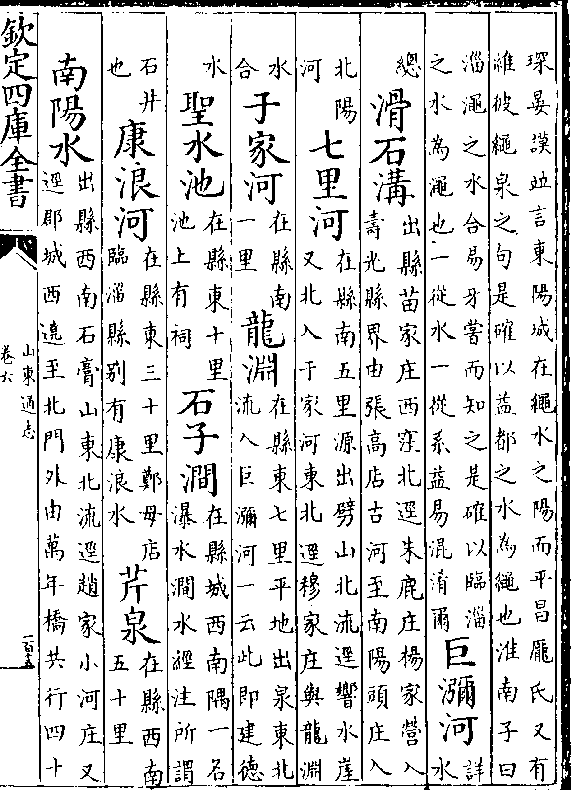 琛晏謨竝言東陽城在繩水之陽而平昌龎氏又有
維彼繩泉之句是確以益都之水為繩也淮南子曰
淄澠之水合易牙嘗而知之是確以臨淄
之水為澠也一從水一從系益易混淆爾
巨瀰河
詳
水
總
滑石溝
出縣苗家庄西窪北逕朱鹿庄楊家營入
壽光縣界由張高店古河至南陽頭庄入
北陽
河
七里河
在縣南五里源出劈山北流逕響水崖
又北入于家河東北逕穆家庄與龍淵
水
合
子家河
在縣南
一里
龍淵
在縣東七里平地出泉東北
流入巨瀰河一云此即建德
水
聖水池
在縣東十里
池上有祠
石子澗
在縣城西南隅一名
瀑水澗水經注所謂
石井
也
康浪河
在縣東三十里鄭母店
臨淄縣别有康浪水
芹泉
在縣西南
五十里
南陽水
出縣西南石膏山東北流逕趙家小河庄又
逕郡城西遶至北門外由萬年橋共行四十
欽定四庫全書
山東通志
卷六